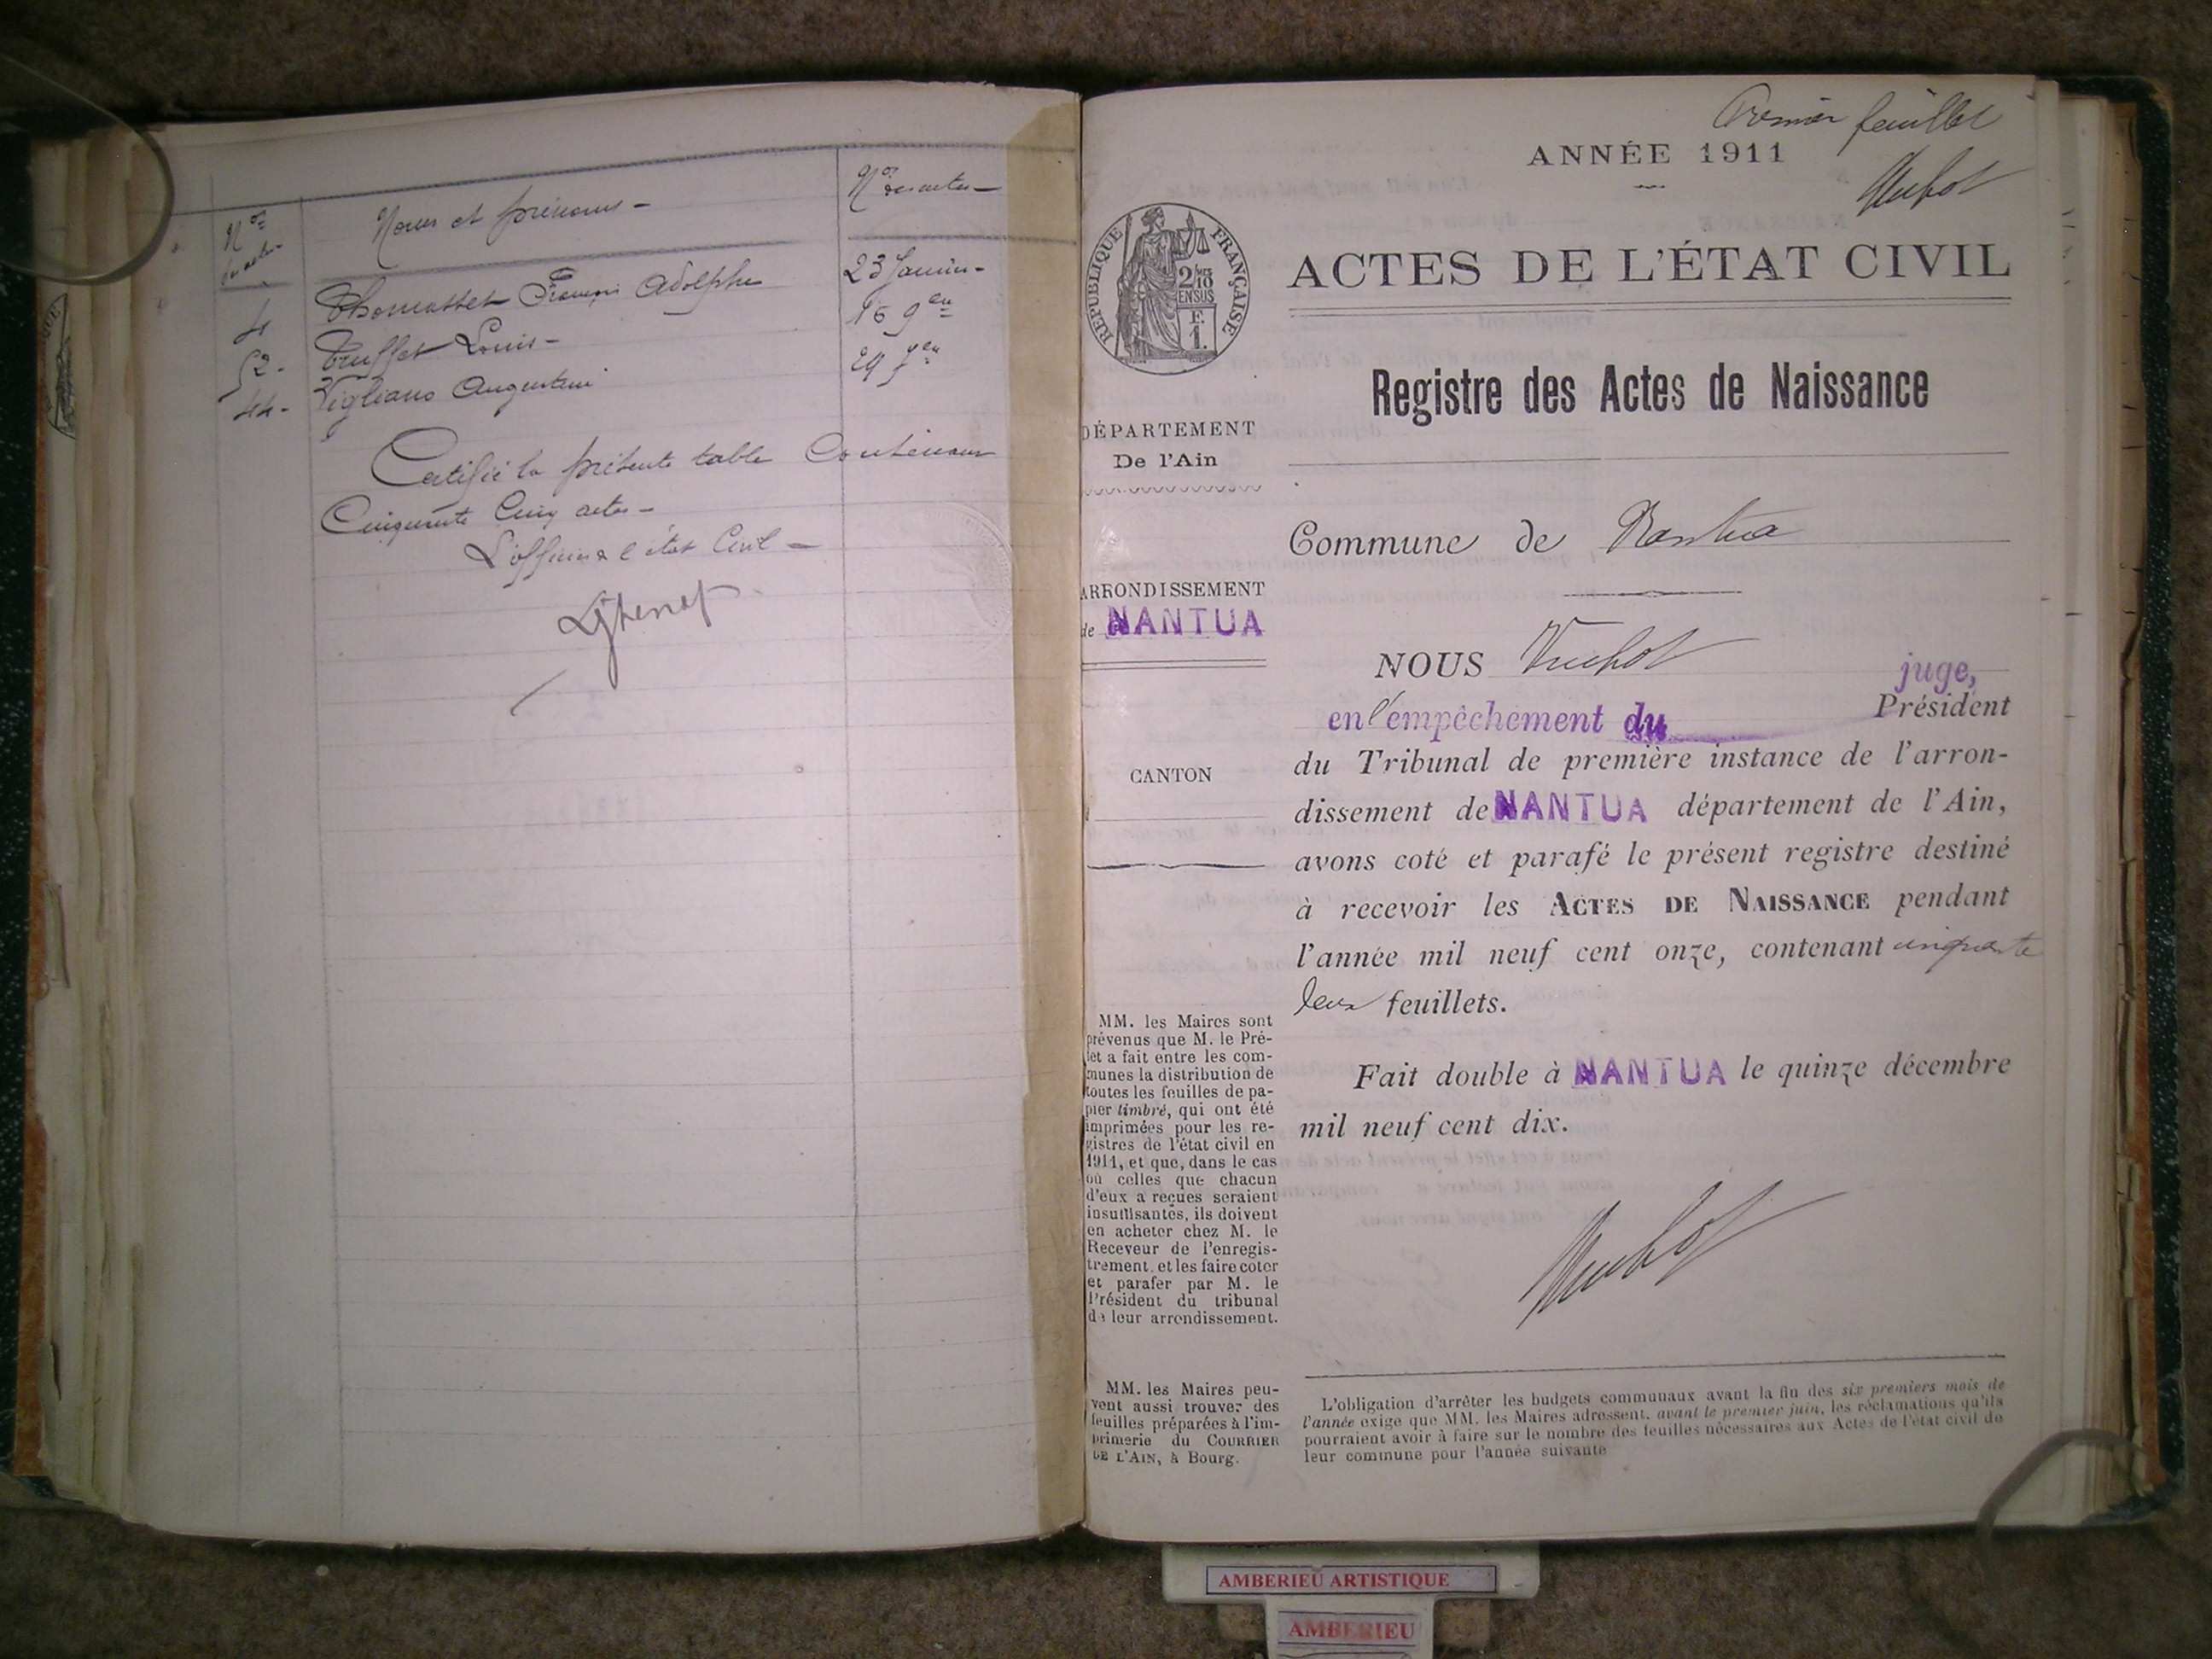 Nos des actes
Noms et prénoms -
Nos des actes -
4 Thomasset François Adolphe 23 Janvier -
52 - Truffet Louis - 16 9bre
44 - Vigliano Augustini 29 7bre
Certifié la présente table Contenant
Cinquante Cinq actes -
L'officier de l'état Civil -
Premier feuillet
ANNÉE 1911
Vuchot
RÉPUBLIQUE FRANÇAISE
2/10mes
EN SUS
F.
1.
ACTES DE L'ÉTAT CIVIL
Registre des Actes de Naissance
DÉPARTEMENT
De l'Ain
Commune de Nantua
ARRONDISSEMENT
de NANTUA
NOUS Vuchot juge,
en l'empêchement du Président
du Tribunal de première instance de l'arron-
dissement de NANTUA département de l'Ain,
avons coté et parafé le présent registre destiné
à recevoir les ACTES DE NAISSANCE pendant
l'année mil neuf cent onze, contenant cinquante
deux feuillets.
Fait double à NANTUA le quinze décembre
mil neuf cent dix.
Vuchot
CANTON
MM. les Maires sont
prévenus que M. le Pré-
fet a fait entre les com-
munes la distribution de
toutes les feuilles de pa-
pier timbré, qui ont été
imprimées pour les re-
gistres de l'état civil en
1911, et que, dans le cas
où celles que chacun
d'eux a reçues seraient
insuffisantes, ils doivent
en acheter chez M. le
Receveur de l'enregis-
trement, et les faire coter
et parafer par M. le
Président du tribunal
de leur arrondissement.
MM. les Maires peu-
vent aussi trouver des
feuilles préparées à l'im-
primerie du COURRIER
DE L'AIN, à Bourg.
L'obligation d'arrêter les budgets communaux avant la fin des six premiers mois de
l'année exige que MM. les Maires adressent, avant le premier juin, les réclamations qu'ils
pourraient avoir à faire sur le nombre des feuilles nécessaires aux Actes de l'état civil de
leur commune pour l'année suivante
AMBERIEU ARTISTIQUE
AMBERIEU